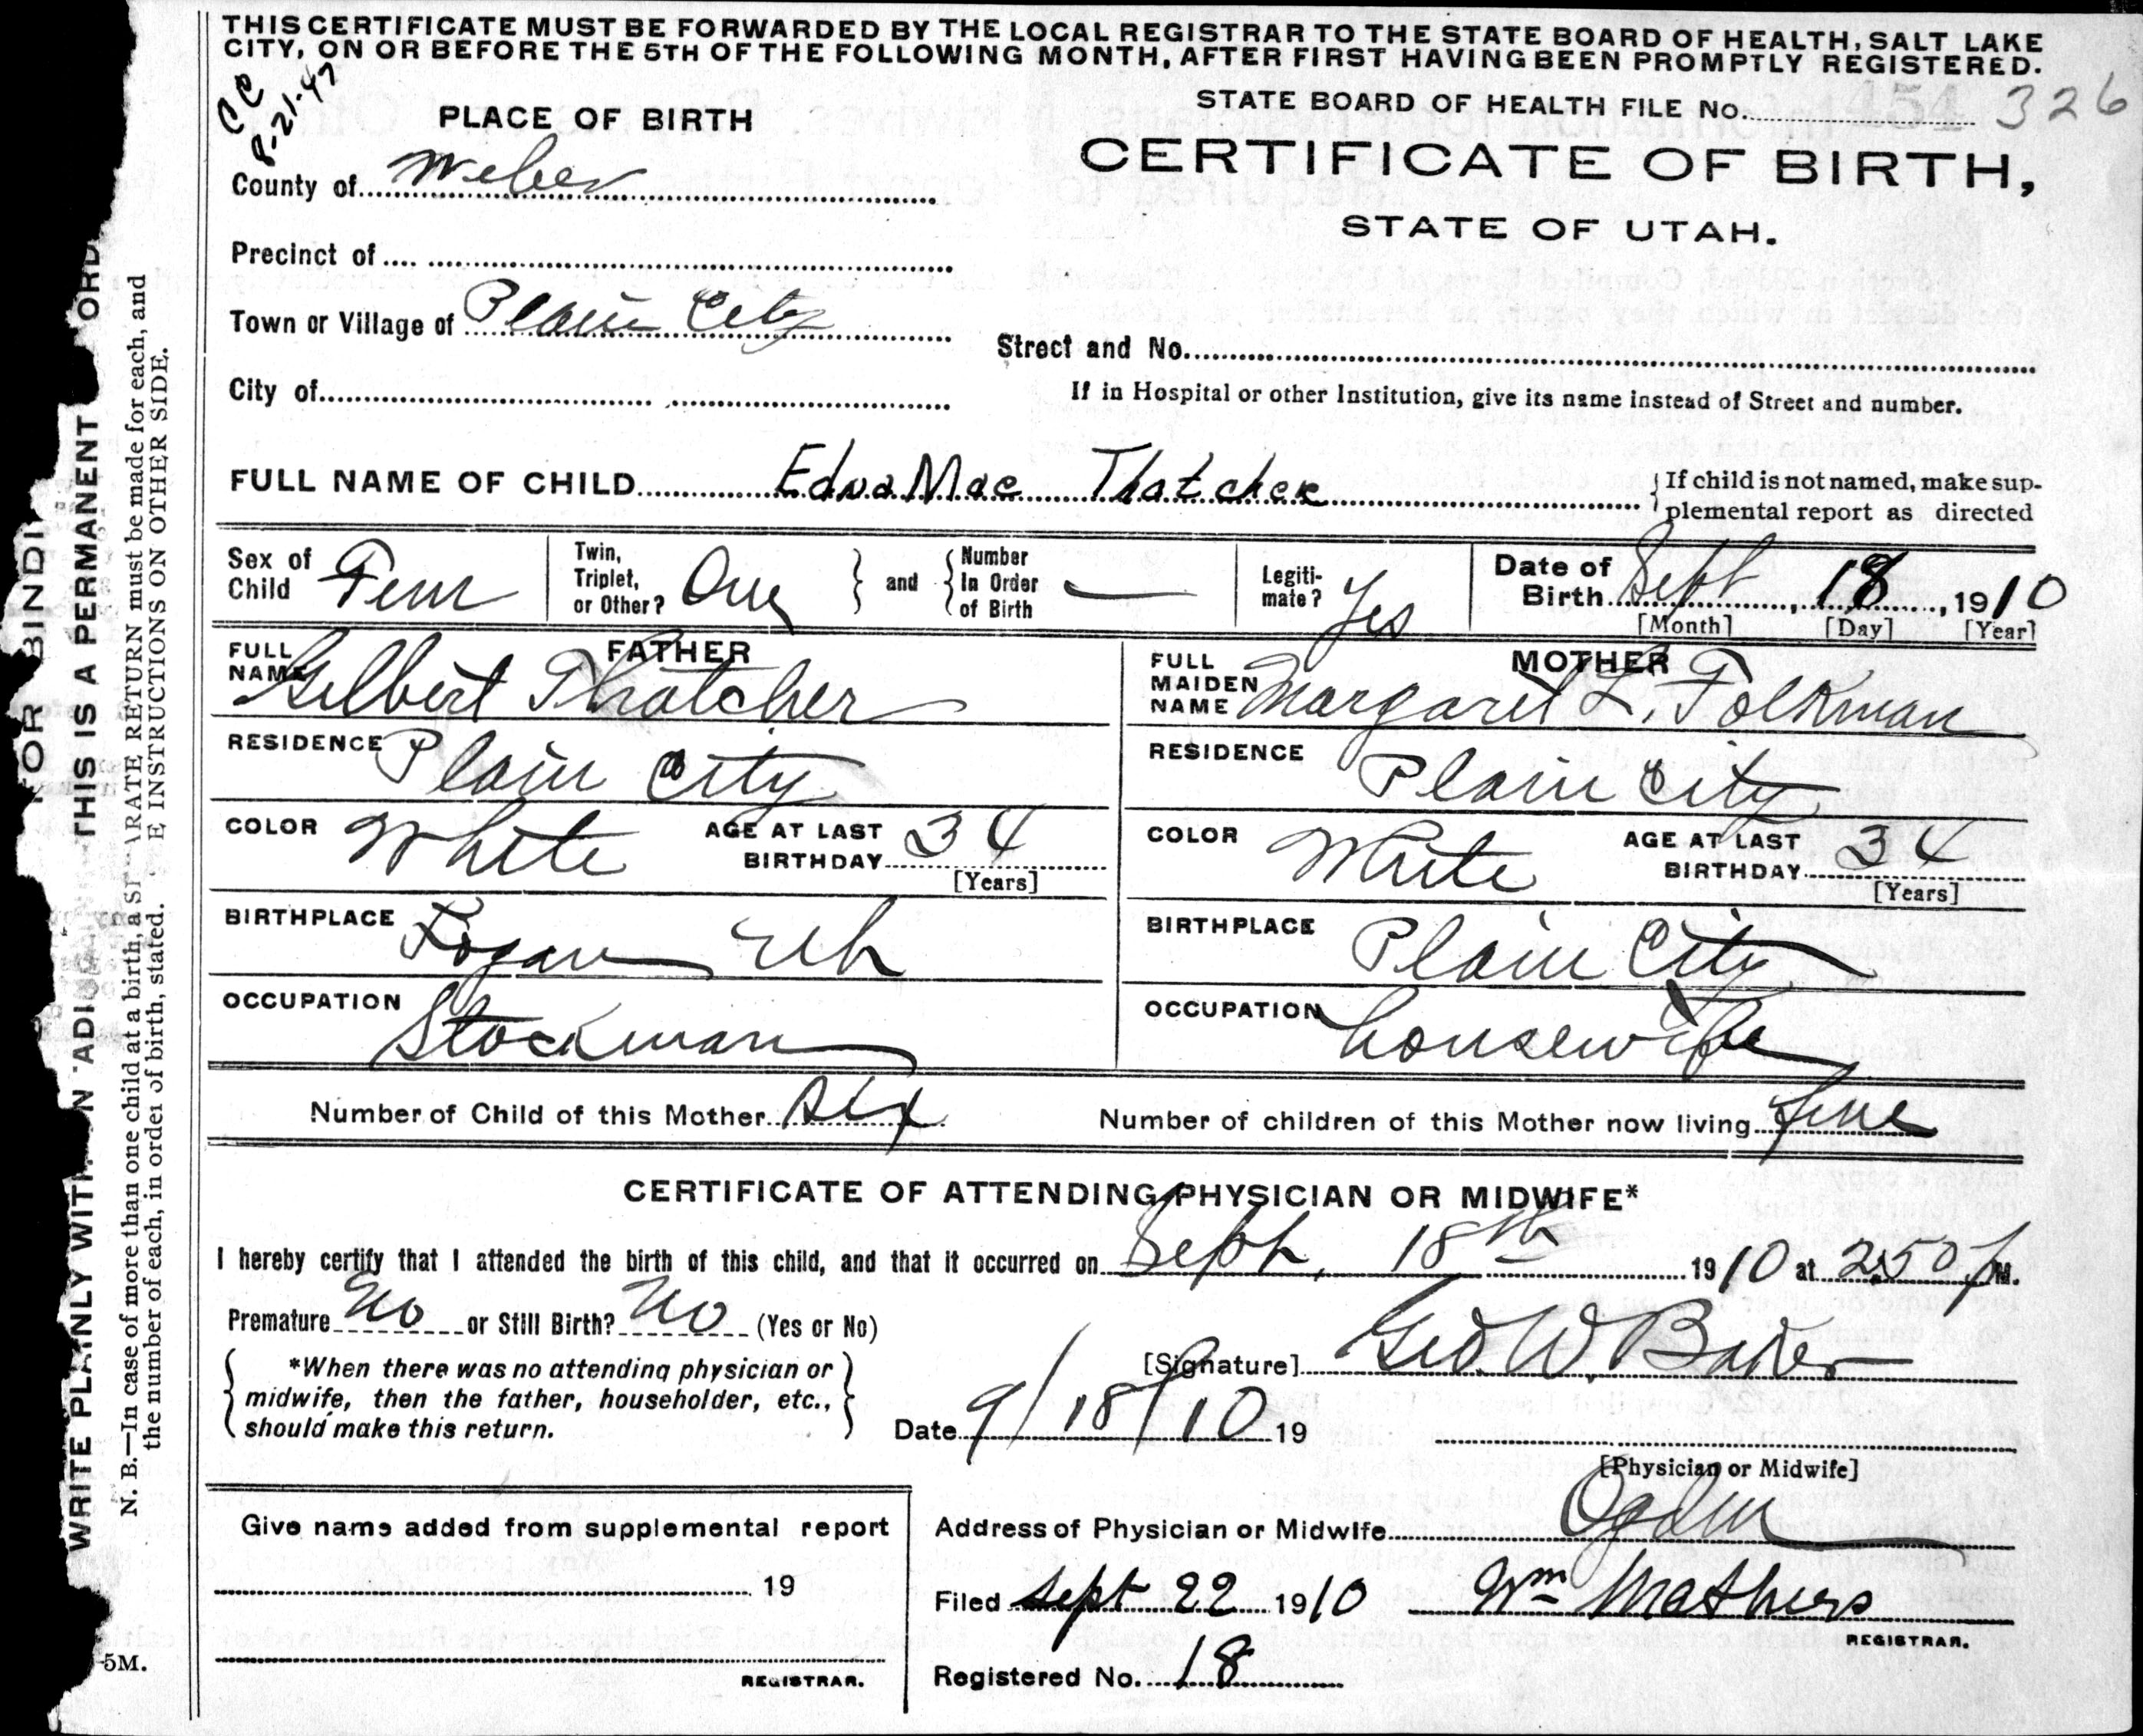 THIS CERTIFICATE MUST BE FORWARDED BY THE LOCAL REGISTRAR TO THE STATE BOARD OF HEALTH, SALT LAKE
CITY, ON OR BEFORE THE 5TH OF THE FOLLOWING MONTH, AFTER FIRST HAVING BEEN PROMPTLY REGISTERED.
CC
8-21-47
PLACE OF BIRTH
STATE BOARD OF HEALTH FILE No. 454 326
CERTIFICATE OF BIRTH,
STATE OF UTAH.
County of Weber
Precinct of
Town or Village of Plain City
Street and No.
City of
If in Hospital or other Institution, give its name instead of Street and number.
FULL NAME OF CHILD Edna Mae Thatcher
{If child is not named, make sup-
plemental report as directed
Sex of Child Fem
Twin, Triplet, or Other? One } and { Number In Order of Birth —
Legiti-mate? Yes
Date of Birth Sept, 18, 1910
[Month] [Day] [Year]
FATHER
FULL NAME Gilbert Thatcher
RESIDENCE Plain City
COLOR White AGE AT LAST BIRTHDAY 34
[Years]
BIRTHPLACE Logan Uh
OCCUPATION Stockman
MOTHER
FULL MAIDEN NAME Margaret L. Folkman
RESIDENCE Plain City
COLOR White AGE AT LAST BIRTHDAY 34
[Years]
BIRTHPLACE Plain City
OCCUPATION housewife
Number of Child of this Mother Six
Number of children of this Mother now living five
CERTIFICATE OF ATTENDING PHYSICIAN OR MIDWIFE*
I hereby certify that I attended the birth of this child, and that it occurred on Sept, 18th 1910 at 2.50 p M.
Premature no or Still Birth? no (Yes or No)
*When there was no attending physician or
midwife, then the father, householder, etc.,
should make this return.
[Signature] Geo. W. Baker
Date 9/18/10 19
[Physician or Midwife]
Give name added from supplemental report
19
REGISTRAR.
Address of Physician or Midwife Ogden
Filed Sept 22 1910 Wm Mathers
REGISTRAR.
Registered No. 18
5M.
FOR BINDI
WRITE PLAINLY WITH N ADIN THIS IS A PERMANENT ORD
N. B.—In case of more than one child at a birth, a S ARATE RETURN must be made for each, and
the number of each, in order of birth, stated. E INSTRUCTIONS ON OTHER SIDE.